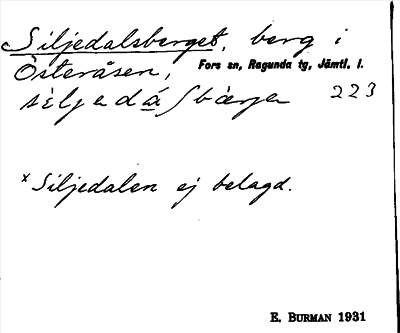 Siljedalsberget, berg i
Österåsen, Fors sn, Ragunda tg, Jämtl. l.
223
*Siljedalen ej belagd.
E. BURMAN 1931